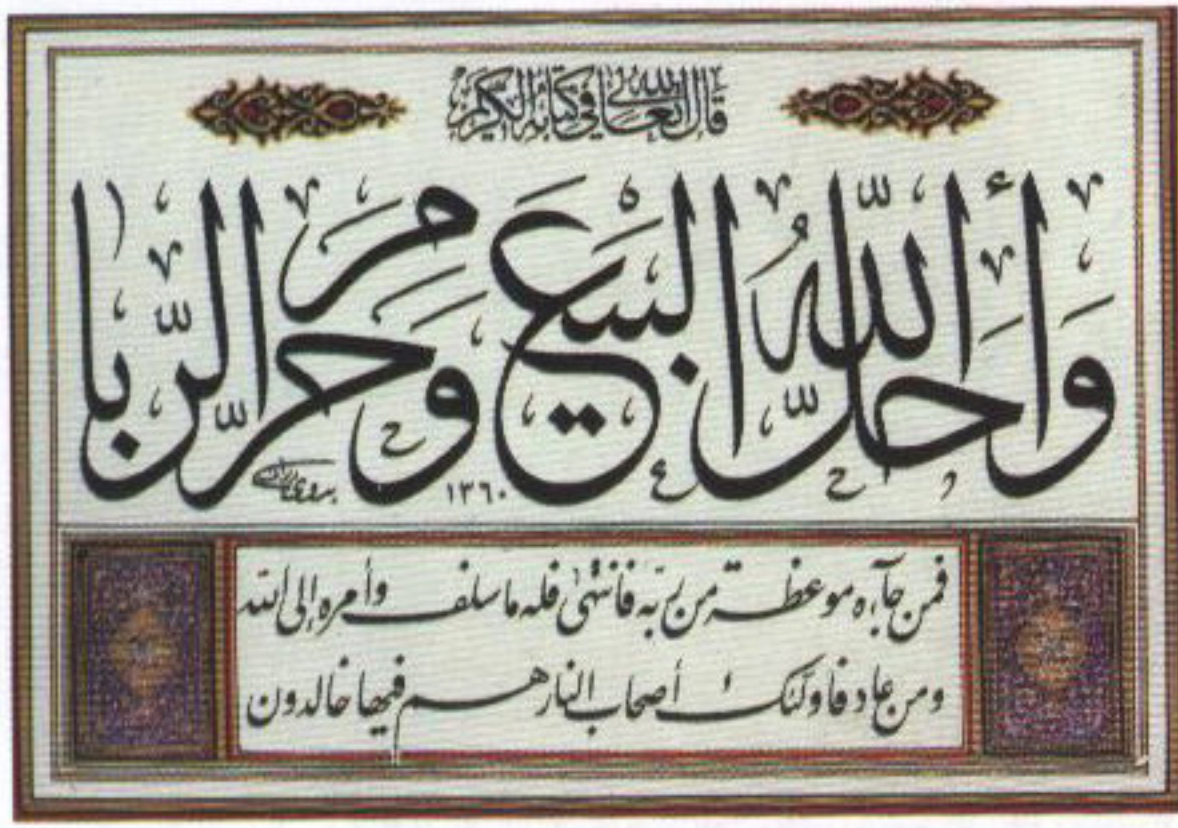 قال الله تعالى في كتابه الكريم
وَأَحَلَّ اللّٰهُ الْبَيْعَ وَحَرَّمَ الرِّبا
بدوي ١٣٦٠
فمن جآءه موعظة من ربّه فانتهىٰ فله ما سلف وأمره إلى الله
ومن عاد فاولئك أصحاب النار هم فيها خالدون